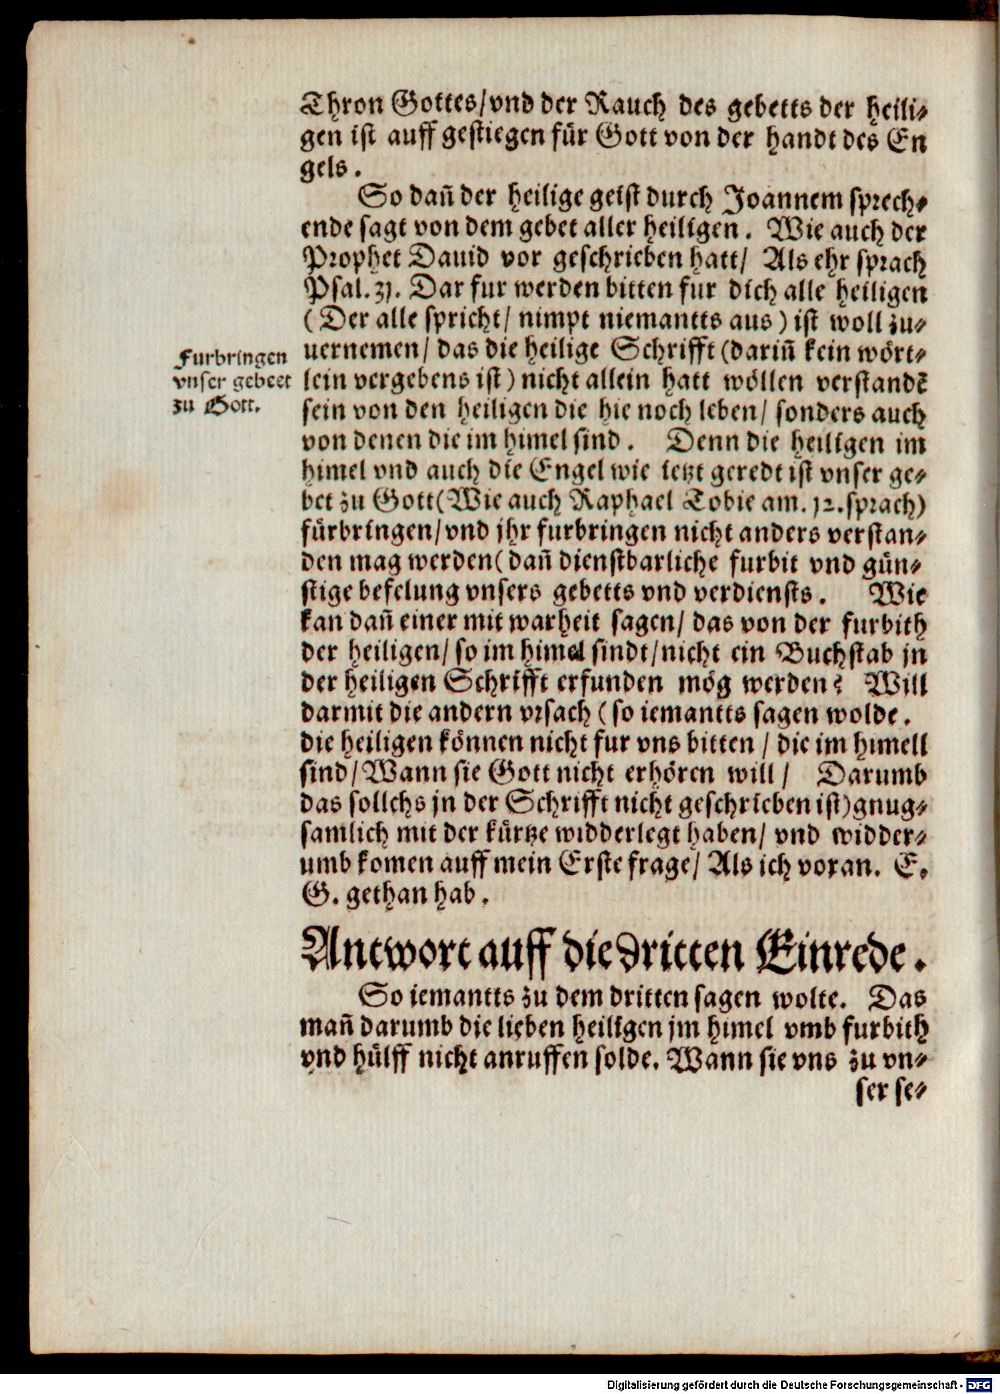 Thron Gottes/vnd der Rauch des gebetts der heili⸗
gen ist auff gestiegen für Gott von der handt des En
gels.
So dañ der heilige geist durch Joannem sprech⸗
ende sagt von dem gebet aller heiligen. Wie auch der
Prophet Dauid vor geschrieben hatt/ Als ehr sprach
Psal. 31. Dar fur werden bitten fur dich alle heiligen
(Der alle spricht/ nimpt niemantts aus) ist woll zu⸗
uernemen/ das die heilige Schrifft (dariñ kein wört⸗
lein vergebens ist) nicht allein hatt wöllen verstandẽ
sein von den heiligen die hie noch leben/ sonders auch
von denen die im himel sind. Denn die heiligen im
himel vnd auch die Engel wie ietzt geredt ist vnser ge⸗
bet zu Gott (Wie auch Raphael Tobie am. 12. sprach)
fürbringen/vnd jhr furbringen nicht anders verstan⸗
den mag werden (dañ dienstbarliche furbit vnd gün⸗
stige befelung vnsers gebetts vnd verdiensts. Wie
kan dañ einer mit warheit sagen/ das von der furbith
der heiligen/ so im himel sindt/nicht ein Buchstab jn
der heiligen Schrifft erfunden mög werden? Will
darmit die andern vrsach (so iemantts sagen wolde.
die heiligen können nicht fur vns bitten / die im himell
sind/ Wann sie Gott nicht erhören will/ Darumb
das sollchs jn der Schrifft nicht geschrieben ist) gnug⸗
samlich mit der kürtze widderlegt haben/ vnd widder⸗
umb komen auff mein Erste frage/ Als ich voran. E.
G. gethan hab.
Furbringen
vnser gebeet
zu Gott.
Antwort auff die dritten Einrede.
So iemantts zu dem dritten sagen wolte. Das
mañ darumb die lieben heiligen jm himel vmb furbith
vnd hülff nicht anruffen solde. Wann sie vns zu vn⸗
ser se⸗
Digitalisierung gefördert durch die Deutsche Forschungsgemeinschaft - DFG